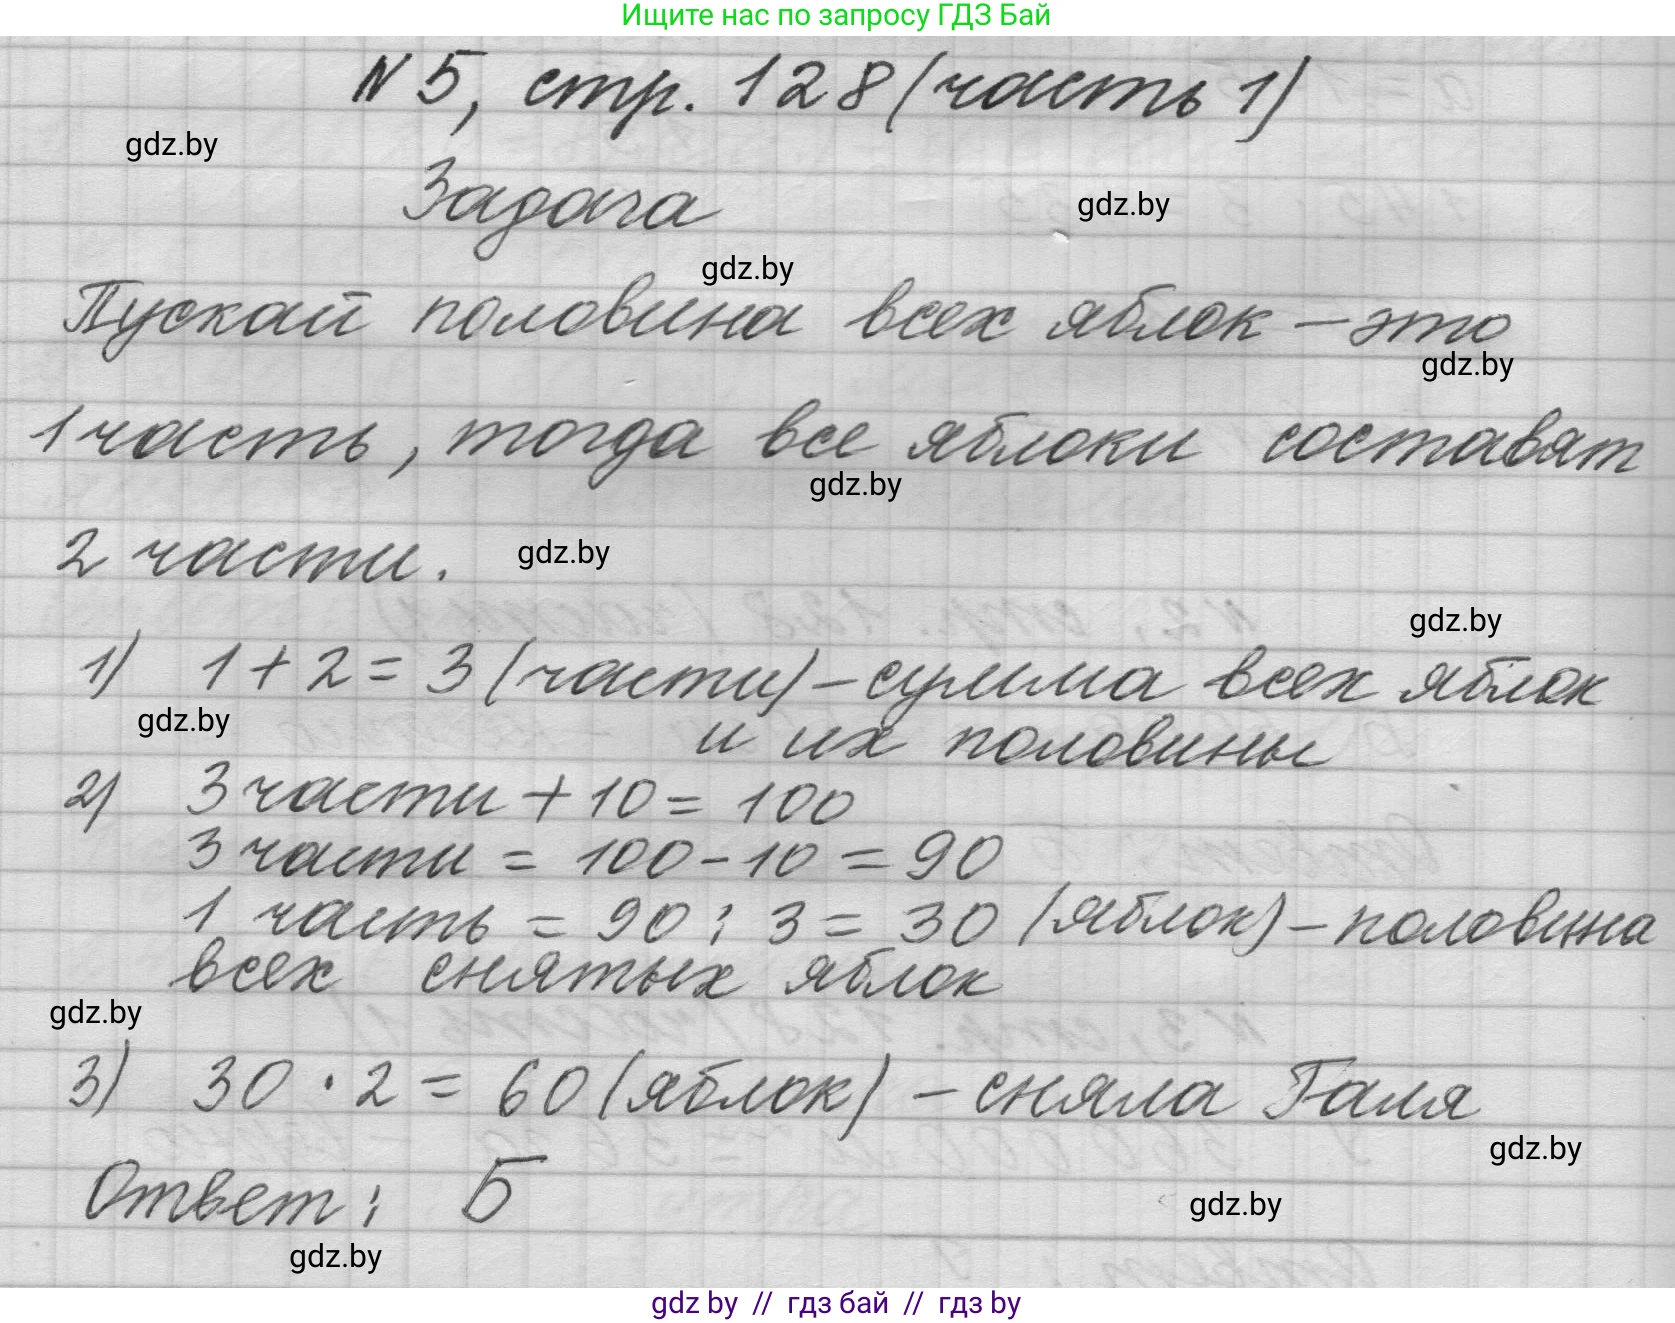 Ищите нас по запросу ГДЗ Бай
N 5, стр. 128 (часть 1)
gdz.by
Задача
gdz.by
gdz.by
Пускай половина всех яблок – это
gdz.by
1 часть, тогда все яблоки составят
gdz.by
2 части.
gdz.by
gdz.by
1) 1 + 2 = 3 (части) – сумма всех яблок
gdz.by
и их половины
2) 3 части + 10 = 100
3 части = 100 - 10 = 90
1 часть = 90 : 3 = 30 (яблок) – половина
всех снятых яблок
gdz.by
3) 30 · 2 = 60 (яблок) – сняла Галя
gdz.by
Ответ: Б
gdz.by
gdz.by
gdz by // гдз бай // гдз by